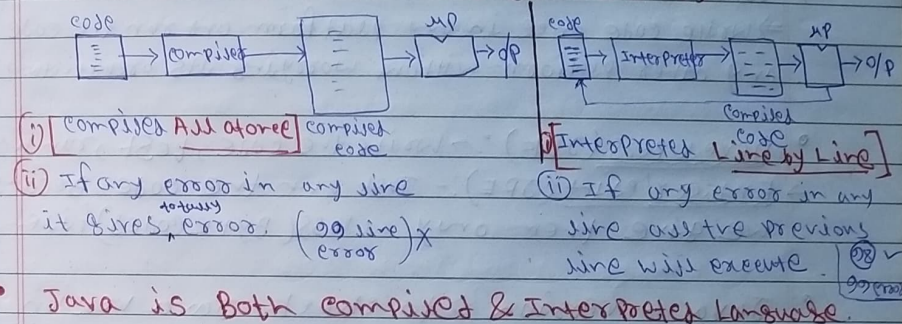 code
compiler
μP
O/P
compiled
code
(i) [Compiled All atonce]
(ii) If any error in any line
it gives totally error. (99 line error) ×
code
Interpreter
μP
O/P
Compiled
code
(i) [Interpreted Line by Line]
(ii) If any error in any
line all the previous
line will execute.
98 ✓
99 error
• Java is Both compiled & Interpreted Language.